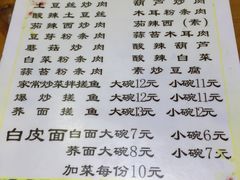 土豆丝炒肉 木耳粉条肉
酸辣土豆丝 酸辣葫芦
茄辣西(素)
豆芽粉条肉 蒜苔木耳肉
蘑菇炒肉 酸辣葫芦
白菜粉条肉 酸辣白菜
蒜苔粉条肉 素炒豆腐
家常炒菜拌揉鱼 大碗12元 小碗11元
爆炒揉鱼 大碗13元 小碗12元
荞面揉鱼 大碗12元 小碗11元
白皮面 白面大碗7元 小碗6元
荞面大碗8元 小碗7元
加菜每份10元